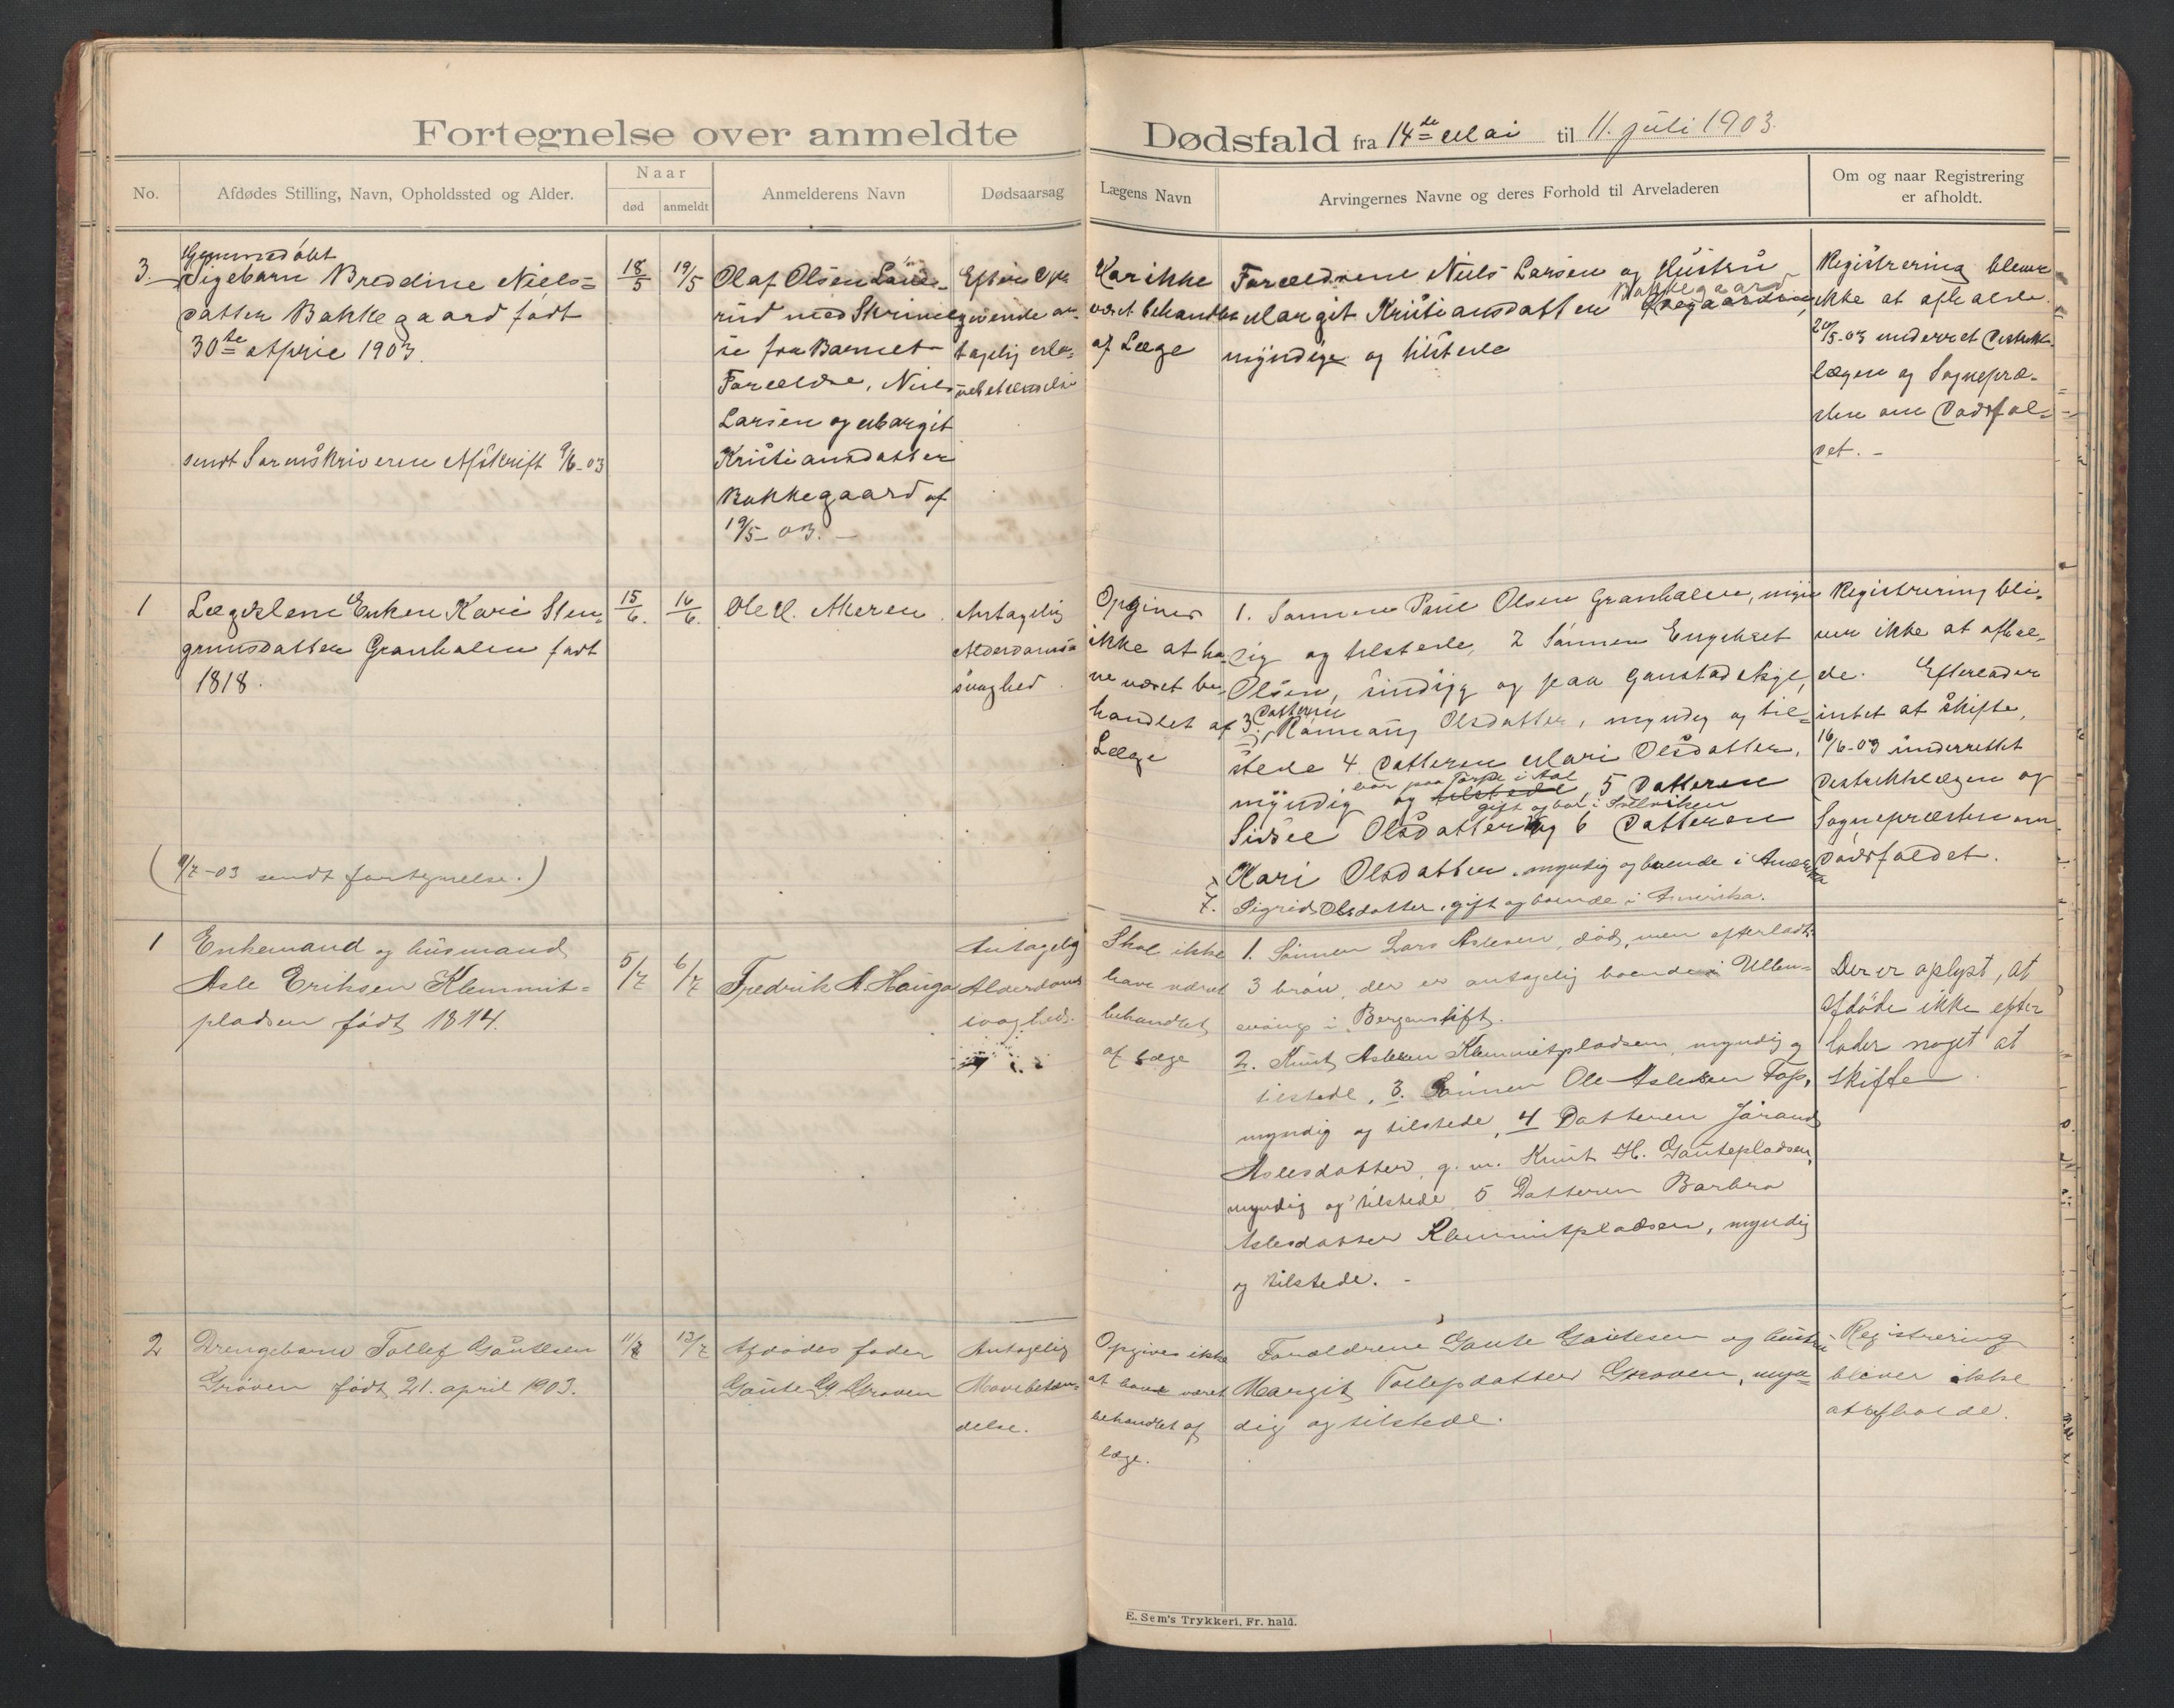 Fortegnelse over anmeldte
Dødsfald fra 14de Mai til 11. juli 1903.
No.
Afdødes Stilling, Navn, Opholdssted og Alder.
Naar
død
anmeldt
Anmelderens Navn
Dødsaarsag
Lægens Navn
Arvingernes Navne og deres Forhold til Arveladeren
Om og naar Registrering
er afholdt.
3.
Hjemmedøbt
Pigebarn Breddine Niels=
datter Bakkegaard født
30te April 1903.
sendt Sorenskriveren Afskrift 9/6-03
18/5
19/5
Olaf Olsen
rud med Skrivel
se fra Barnets
Forældre, Niels
Larsen og Margit
Kristiansdatter
Bakkegaard af
19/5-03. -
Efter Op
givende an-
tagelig
Har ikke
været behandlet
af Læge
Forældrene Niels Larsen og Hustru
Margit Kristiansdatter Bakkegaard
myndige og tilstede
Registrering bliver
ikke at afholde.
20/5-03 underret Distrikts
lægen og Sognepræ-
sten om Dødsfal-
det. -
1
Lægdslem Enken Kari Sten-
grimsdatter Granhalen født
1818.
(9/7-03 sendt fortegnelse.)
15/6.
16/6.
Ole H. Akeren.
Antagelig
Alderdoms
svaghed.
Opgives
ikke at ha-
ve været be-
handlet af
Læge
1. Sønnen Paul Olsen Granhalen, myn
dig og tilstede, 2 Sønnen Engebret
Olsen, sindsyg og paa Gaustad Asyl,
3. Datteren Rannaug Olsdatter, myndig og til=
stede 4 Datteren Mari Olsdatter,
bor paa Torpe i Aal
myndig og tilstede, 5 Datteren
gift og bor i Svelviken
Sidsel Olsdatter og 6 Datteren
Kari Olsdatter, myndig og boende i Amerika
7. Sigrid Olsdatter, gift og boende i Amerika.
Registrering bli-
ver ikke at afhol-
de. Efterlader
intet at skifte,
16/6-03 underrettet
Distriktslægen og
Sognepræsten om
Dødsfaldet.
1
Enkemand og husmand
Asle Eriksen Klemmit=
pladsen født 1814.
5/7
6/7
Fredrik A. Hauga
Antagelig
Alderdoms
svaghed.
Skal ikke
have været
behandlet
af Læge
1. Sønnen Lars Aslesen, død, men efterladt
3 børn, der er antagelig boende i Ullen-
svang i Bergenstift.
2. Knut Aslesen Klemmitpladsen, myndig og
tilstede, 3. Sønnen Ole Aslesen Top,
myndig og tilstede, 4 Datteren Jørand
Aslesdatter, g. m. Knut H. Gautepladsen,
myndig og tilstede 5 Datteren Barbro
Aslesdatter Klemmitpladsen, myndig
og tilstede. -
Der er oplyst, at
afdøde ikke efter
lader noget at
skifte.
2
Drengebarn Tollef Gautesen
Grøven født 21. april 1903.
11/7
13/7
Afdødes fader
Gaute G. Grøven
Antagelig
Mavebetæn-
delse.
Opgives ikke
at have været
behandlet af
læge.
Forældrene Gaute Gautesen og hustru
Margit Tollefsdatter Grøven, myn=
dig og tilstede.
Registrering
bliver ikke
at afholde.
E. Sem's Trykkeri, Fr. hald.